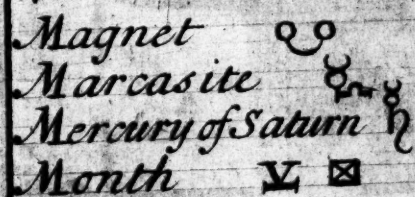 Magnet
Marcasite
Mercury of Saturn
Month